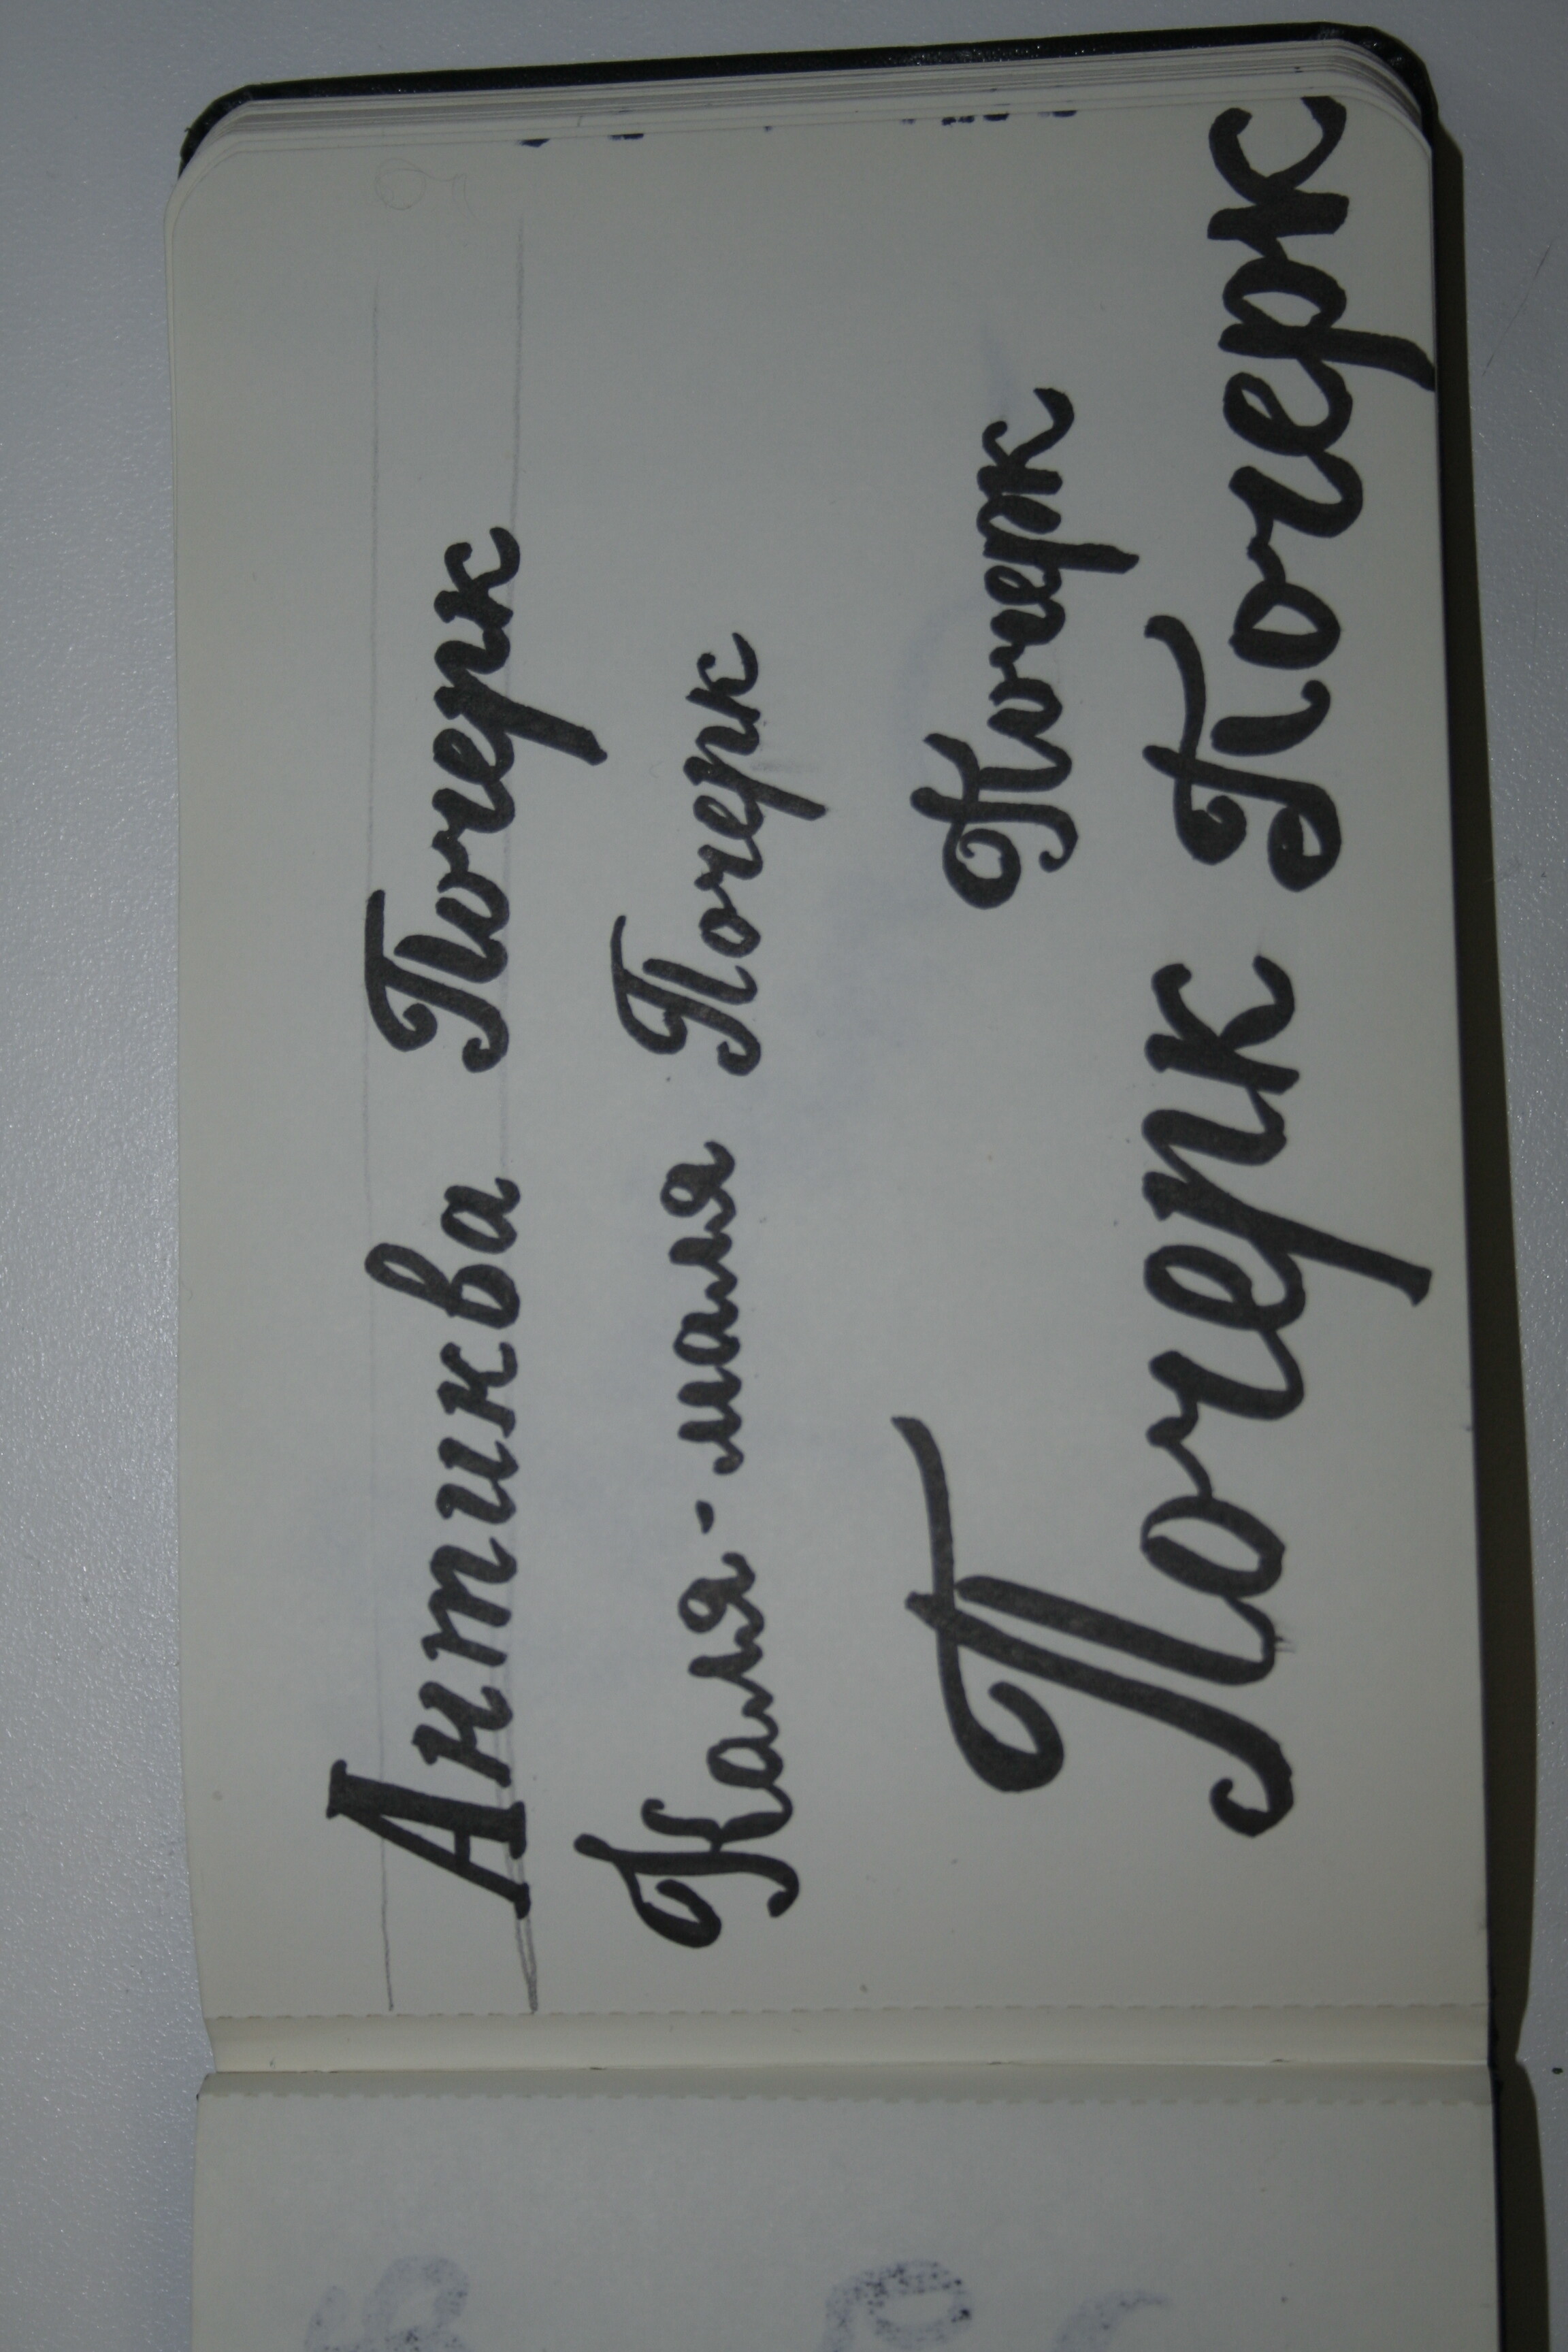 Антиква Почерк
Каля-маля Почерк
Почерк
Почерк Почерк